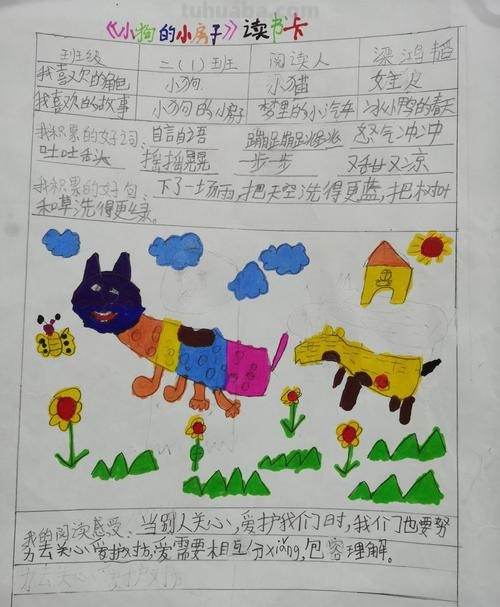 tuhuaba.com
《小狗的小房子》读书卡
班级 二(1)班 阅读人 梁鸿韬
我喜欢的角色 小狗 小猫 女主人
我喜欢的故事 小狗的小房子 梦里的小汽车 冰小鸭的春天
我积累的好词: 自言自语 蹦蹦跳跳 怒气冲冲
吐吐舌头 摇摇晃晃 一步一步 又甜又凉
我积累的好句: 下了一场雨,把天空洗得更蓝,把树叶
和草洗得更绿。
我的阅读感受: 当别人关心,爱护我们时,我们也要努
力去关心爱护他,爱需要相互分xiǎng,包容理解。
力去关心爱护